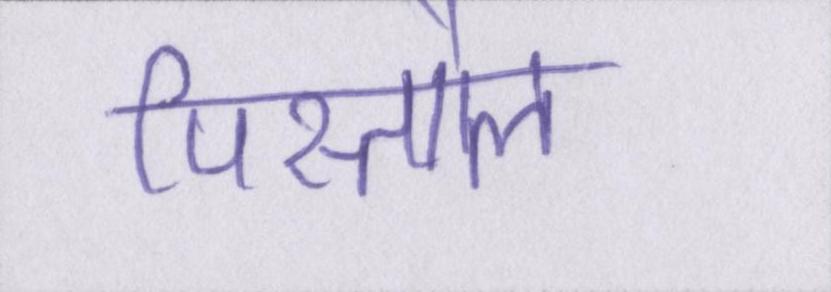 पिस्तौल